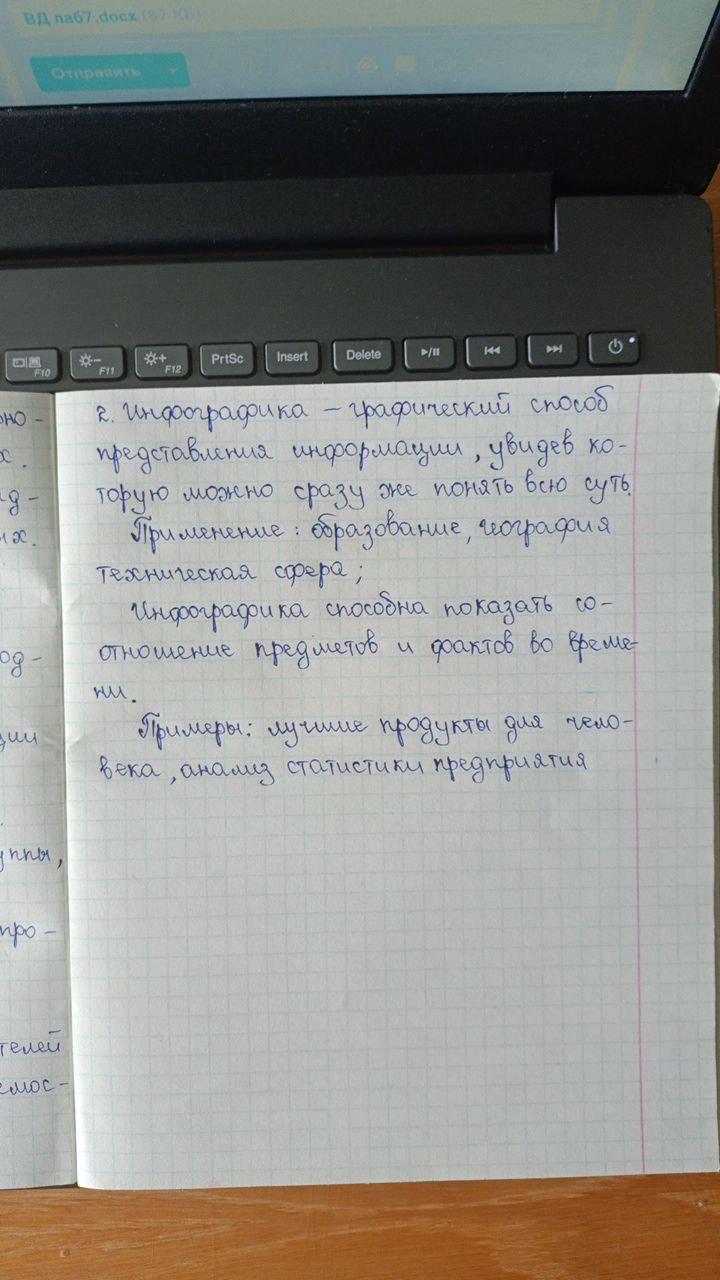 ВД лаб7.docx (87 КБ)
Отправить
F10
F11
F12
PrtSc
Insert
Delete
2. Инфографика – графический способ
представления информации, увидев ко-
торую можно сразу же понять всю суть.
Применение: образование, география
техническая сфера;
Инфографика способна показать со-
отношение предметов и фактов во време-
ни.
Примеры: лучшие продукты для чело-
века, анализ статистики предприятия
но-
х.
ид-
их.
од-
ции
уппы,
про-
телей
емос-